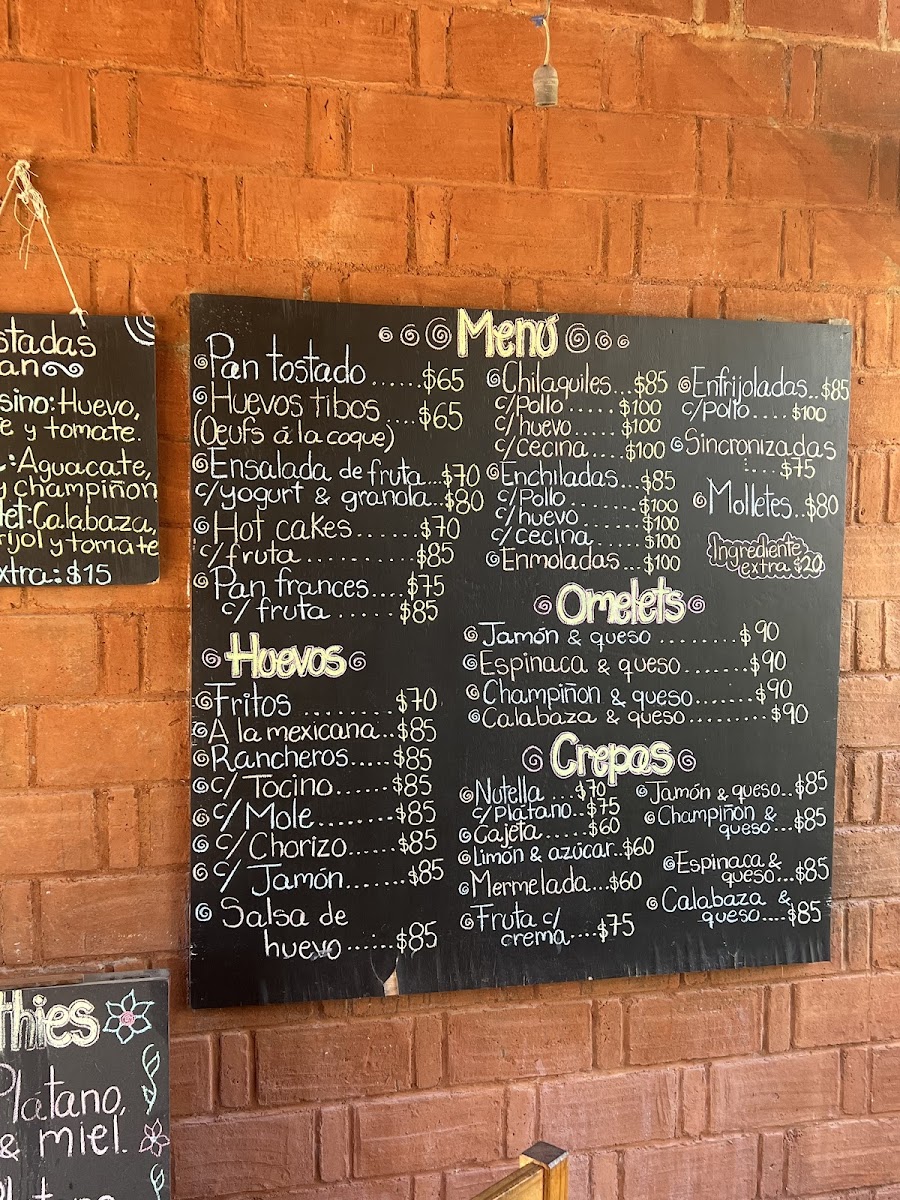 stadas
an
sino: Huevo,
e y tomate.
: Aguacate,
y champiñon
et: Calabaza,
rijol y tomate
xtra: $15
Menú
Pan tostado ...... $65
Huevos tibos .... $65
(Oeufs á la coque)
Ensalada de fruta... $70
c/yogurt & granola.. $80
Hot cakes ....... $70
c/fruta ............ $85
Pan frances .... $75
c/ fruta ...... $85
Huevos
Fritos ......... $70
A la mexicana.. $85
Rancheros..... $85
c/ Tocino...... $85
c/ Mole........ $85
c/ Chorizo..... $85
c/ Jamón....... $85
Salsa de
huevo ...... $85
Chilaquiles... $85
c/Pollo ..... $100
c/huevo ..... $100
c/cecina .... $100
Enchiladas... $85
c/Pollo ...... $100
c/huevo ...... $100
c/cecina ..... $100
Enmoladas... $100
Enfrijoladas.. $85
c/pollo ..... $100
Sincronizadas
.... $75
Molletes.. $80
Ingrediente
extra $20
Omelets
Jamón & queso ........ $90
Espinaca & queso....... $90
Champiñon & queso....... $90
Calabaza & queso......... $90
Crepas
Nutella ... $70
c/Platano.. $75
Cajeta..... $60
Limón & azúcar.. $60
Mermelada... $60
Fruta c/
crema.... $75
Jamón & queso... $85
Champiñon &
queso... $85
Espinaca &
queso... $85
Calabaza &
queso.... $85
thies
Platano,
& miel.